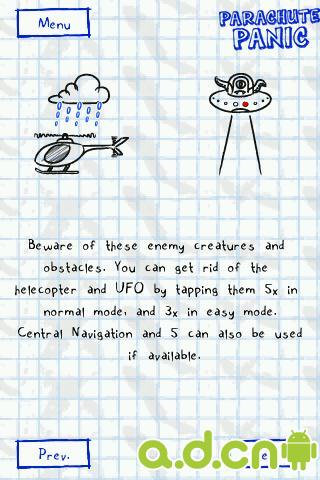 Menu
PARACHUTE
PANIC
Beware of these enemy creatures and
obstacles. You can get rid of the
helecopter and UFO by tapping them 5x in
normal mode, and 3x in easy mode.
Central Navigation and 5 can also be used
if available.
Prev.
a.d.cn